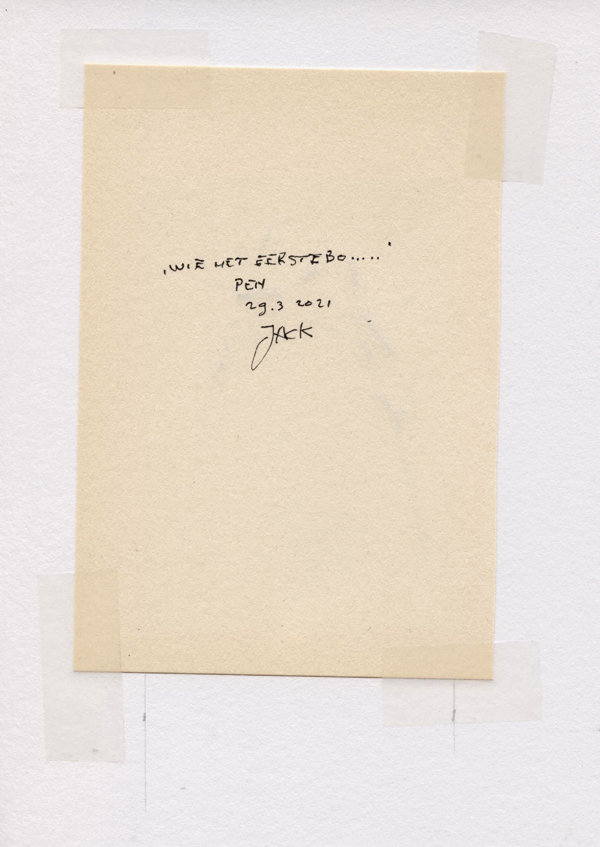 'WIE HET EERSTE BO.....'
PEN
29.3 2021
JACK